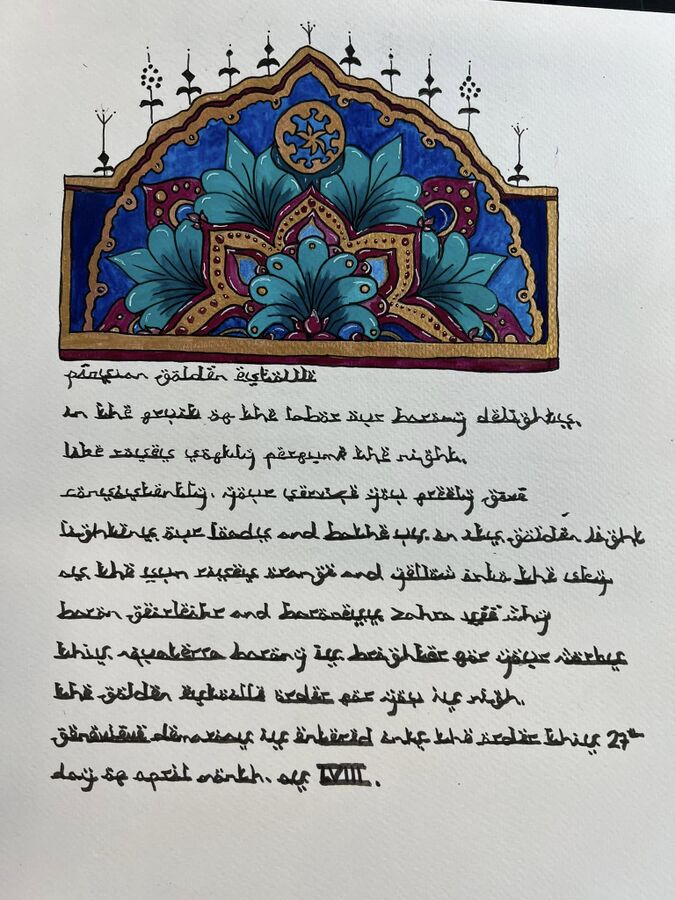 persian golden estoille
in the fruit of the labor our barony delights,
like roses softly perfume the night.
consistently, your service you freely gave
lightens our loads and bathe us in its golden light
as the sun rises orange and yellow into the sky,
baron geirleikr and baroness zahra see why
this aquaterra barony is brighter for your works
the golden estoille order for you is nigh.
is entered into the order this 27th
day of april month, as LVIII.